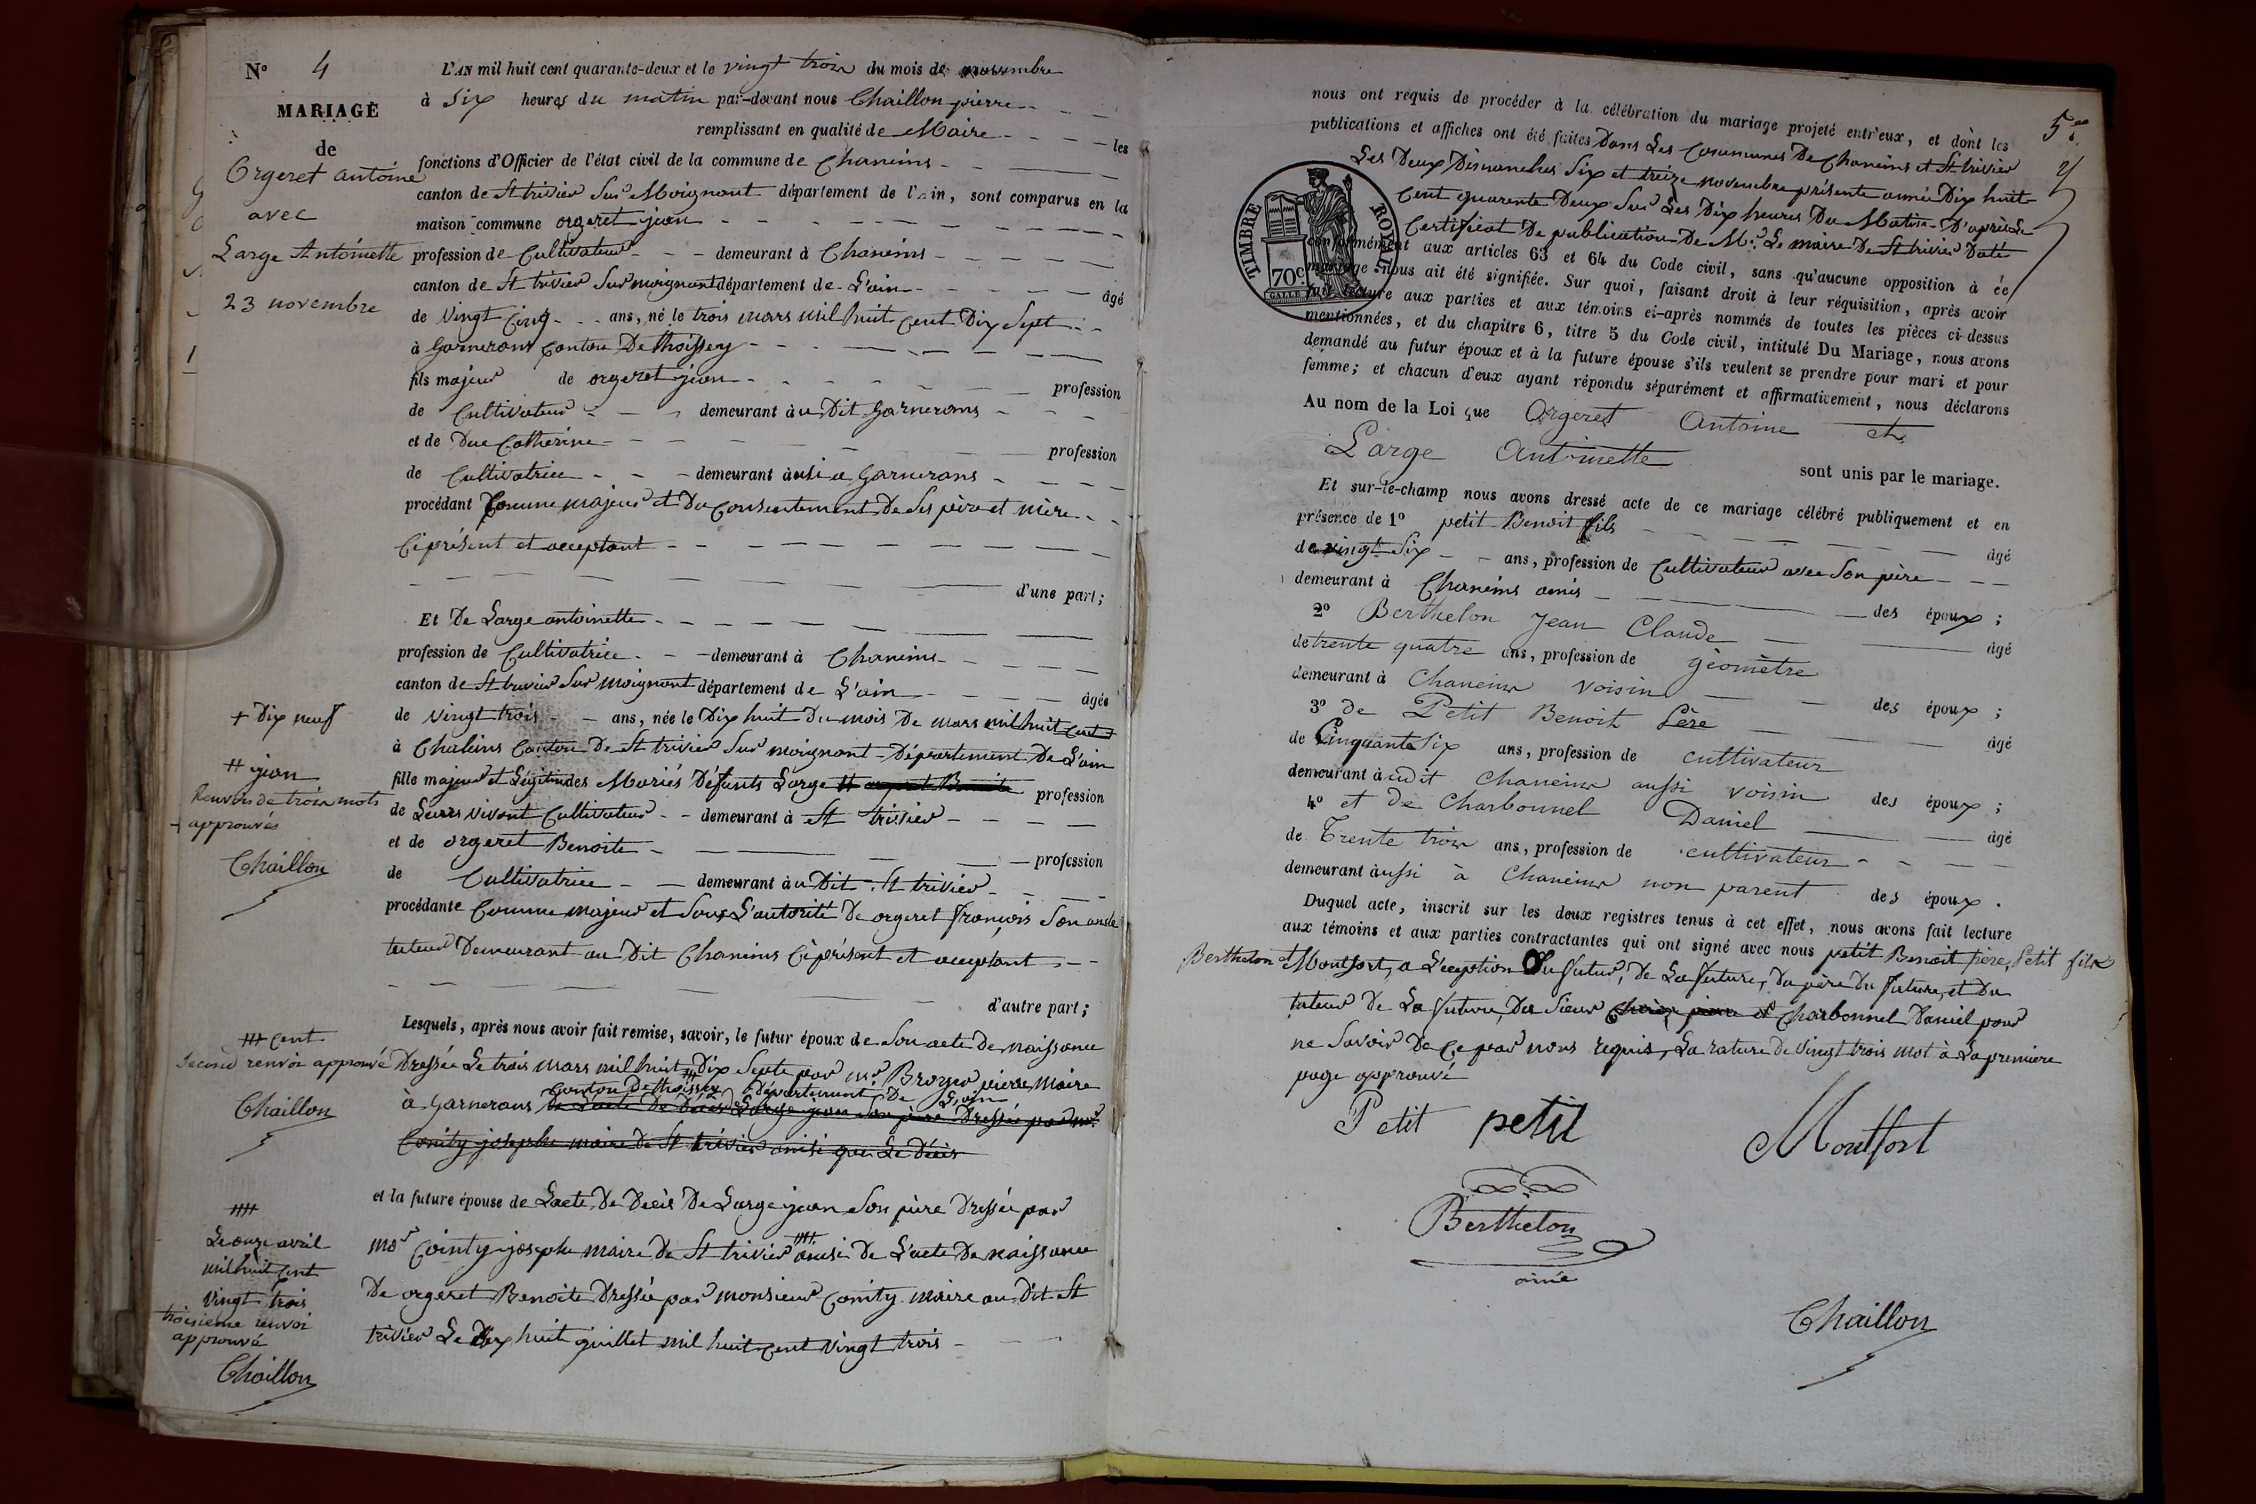 N° 4
MARIAGE
de
Orgeret antoine
avec
Large Antoinette
23 novembre
L'AN mil huit cent quarante-deux et le vingt trois du mois de novembre
à Six heures du matin par-devant nous Chaillon pierre
remplissant en qualité de Maire les
fonctions d'Officier de l'état civil de la commune de Chaneins
canton de St trivier Sur Moignant département de l'ain, sont comparus en la
maison commune orgeret jean
profession de Cultivateur demeurant à Chaneins
canton de St trivier Sur moignant département de L'ain âgé
de Vingt Cinq ans, né le trois mars mil huit Cent Dix Sept
à Garnerans Canton De thoissey
fils majeur de orgeret jean profession
de Cultivateur demeurant àu Dit Garnerans
et de Duc Catherine profession
de Cultivatrice demeurant àusi a Garnerans
procédant Comme majeur et Du Consentement De Ses père et mère
Ci présent et acceptant
d'une part;
Et De Large antoinette
profession de Cultivatrice demeurant à Chaneins
canton de St trivier Sur moignant département de L'ain âgée
de Vingt trois ans, née le Dix huit Du mois De mars mil huit Cent
+ Dix neuf
à Chaleins Canton De St trivier Sur moignant Département De L'ain
fille majeur et Légitimes des Mariés Défunts Large # orgeret Benoite profession
# jean
Renvois de trois mots
approuvés
Chaillon
de Leurs vivant Cultivateur demeurant à St trivier
et de orgeret Benoite profession
de Cultivatrice demeurant àu Dit St trivier
procédante Comme majeur et Sous L'autorité De orgeret françois Son oncle
tuteur Demeurant au Dit Chaneins Ci présent et acceptant
d'autre part;
Lesquels, après nous avoir fait remise, savoir, le futur époux de Son acte de naissance
cent
Second renvoi approuvé
Chaillon
Dressée Le trois mars mil huit Dix Septe par mr Broyer pierre Maire
canton De thoissey Département De L'ain
à Garnerans De L'acte De Décès De Large jean Son père Dressée par mr
Cointy josephe maire De St trivier ainsi que Le Décès
et la future épouse de Lacte De Décès De Large jean Son père Dressée par
Mr Cointy josephe maire De St trivier ainsi De L'acte De naissance
Le onze avril
mil huit Cent
Vingt trois
troisieme renvoi
approuvé
Chaillon
De orgeret Benoite Dressée par monsieur Cointy maire au Dit St
trivier Le Dix huit juillet mil huit Cent Vingt trois
nous ont requis de procéder à la célébration du mariage projeté entr'eux, et dont les
publications et affiches ont été faites Dans Les Communes De Chaneins et St trivier
Les Deux Dimanches Six et treize novembre présente année Dix huit
Cent quarente Deux Sur Les Dix heures Du Matin D'après Le
Certificat De publication De Mr Le maire De St trivier Daté
TIMBRE ROYAL
70c
conformément aux articles 63 et 64 du Code civil, sans qu'aucune opposition à ce
mariage nous ait été signifiée. Sur quoi, faisant droit à leur réquisition, après avoir
fait lecture aux parties et aux témoins ci-après nommés de toutes les pièces ci-dessus
mentionnées, et du chapitre 6, titre 5 du Code civil, intitulé Du Mariage, nous avons
demandé au futur époux et à la future épouse s'ils veulent se prendre pour mari et pour
femme; et chacun d'eux ayant répondu séparément et affirmativement, nous déclarons
Au nom de la Loi que Orgeret Antoine et
Large Antoinette sont unis par le mariage.
Et sur-le-champ nous avons dressé acte de ce mariage célébré publiquement et en
présence de 1° petit Benoit fils âgé
de vingt Six ans, profession de Cultivateur avec Son père
demeurant à Chaneins amis des époux;
2° Berthelon Jean Claude âgé
de trente quatre ans, profession de géomètre
demeurant à Chaneins voisin des époux;
3° de Petit Benoit Père âgé
de Cinquante Six ans, profession de cultivateur
demeurant àudit Chaneins aussi voisin des époux;
4° et de Charbonnel Daniel âgé
de Trente trois ans, profession de cultivateur
demeurant àussi à Chaneins non parent des époux.
Duquel acte, inscrit sur les deux registres tenus à cet effet, nous avons fait lecture
aux témoins et aux parties contractantes qui ont signé avec nous petit Benoit père, Petit fils
Berthelon et Montfort, a L'exeption Du futur, De La future, Du père Du future, et Du
tuteur De La future, Du Sieur Charbonnel Daniel pour
ne Savoir De Ce par nous requis, La rature De Vingt trois mot à La premiere
page approuvé
Petit petit Montfort
Berthelon
ainé
Chaillon